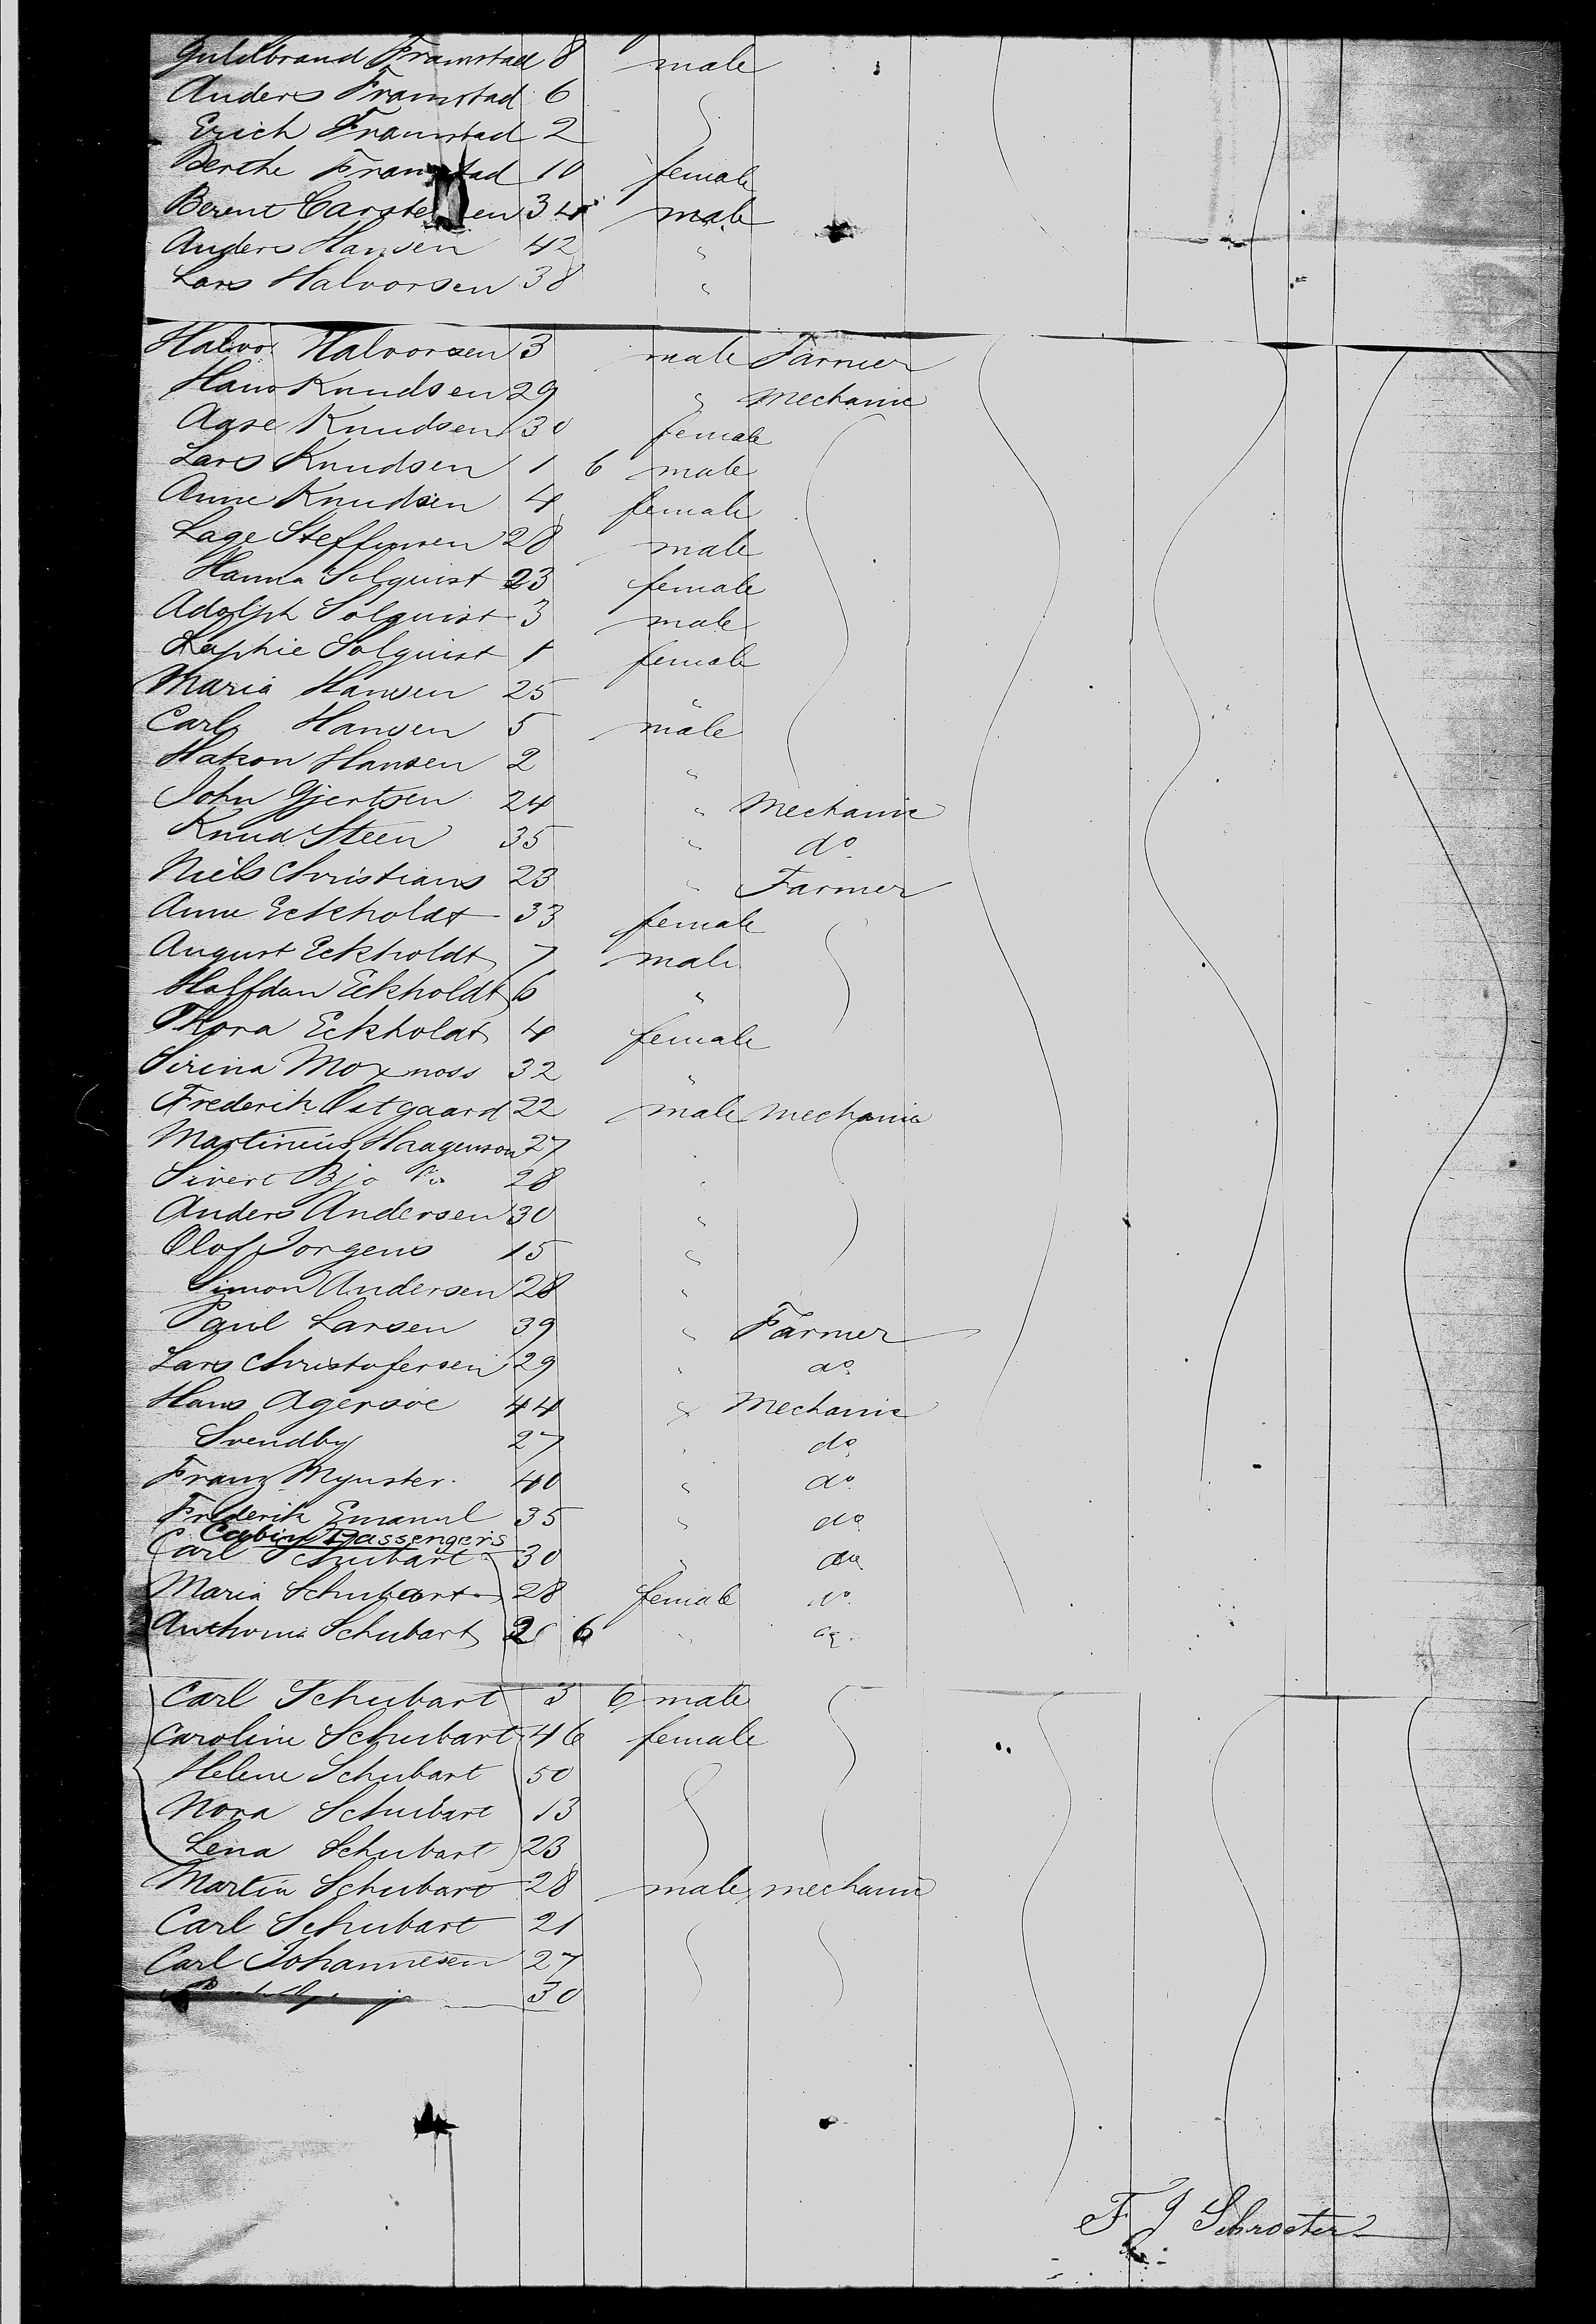 Guldbrand Framstad 8 male
Anders Framstad 6
Erich Framstad 2
Berthe Framstad 10 female
Berent Carste en 34 male
Anders Hansen 42 "
Lars Halvorsen 38 "
Halvo Halvorsen 3 male Farmer
Hans Knudsen 29 " Mechanic
Aase Knudsen 30 female
Lars Knudsen 1 6 male
Anne Knudsen 4 female
Lage Steffensen 28 male
Hanna Solquist 23 female
Adolph Solquist 3 male
Sophie Solquist 1 female
Maria Hansen 25 "
Carl Hansen 5 male
Hakon Hansen 2 "
John Gjertsen 24 " Mechanic
Knud Steen 35 " do
Niels Christians 23 " Farmer
Anne Eckholdt 33 female
August Eckholdt 7 male
Halfdan Eckholdt 6 "
Thora Eckholdt 4 female
Sirina Moxnoss 32 "
Frederik Ostgaard 22 male mechanic
Martineus Haagenson 27
Sivert Bjo 28
Anders Andersen 30 "
Olof Jorgens 15 "
Simon Andersen 28 "
Paul Larsen 39 " Farmer
Lars Christofersen 29 " do
Hans Agersoe 44 " Mechanic
Svendby 27 " do
Franz Mynster 40 " do
Frederik Emanul 35 " do
Cabin Passengers
Carl Schubart 30 " do
Maria Schubart 28 female do
Schubart 6 " do
Carl Schubart 3 6 male
Caroline Schubart 46 female
Helene Schubart 50
Nora Schubart 13
Lena Schubart 23
Martin Schubart 28 male mechanic
Carl Schubart 21
Carl Johannesen 27
30
F J Schroeter